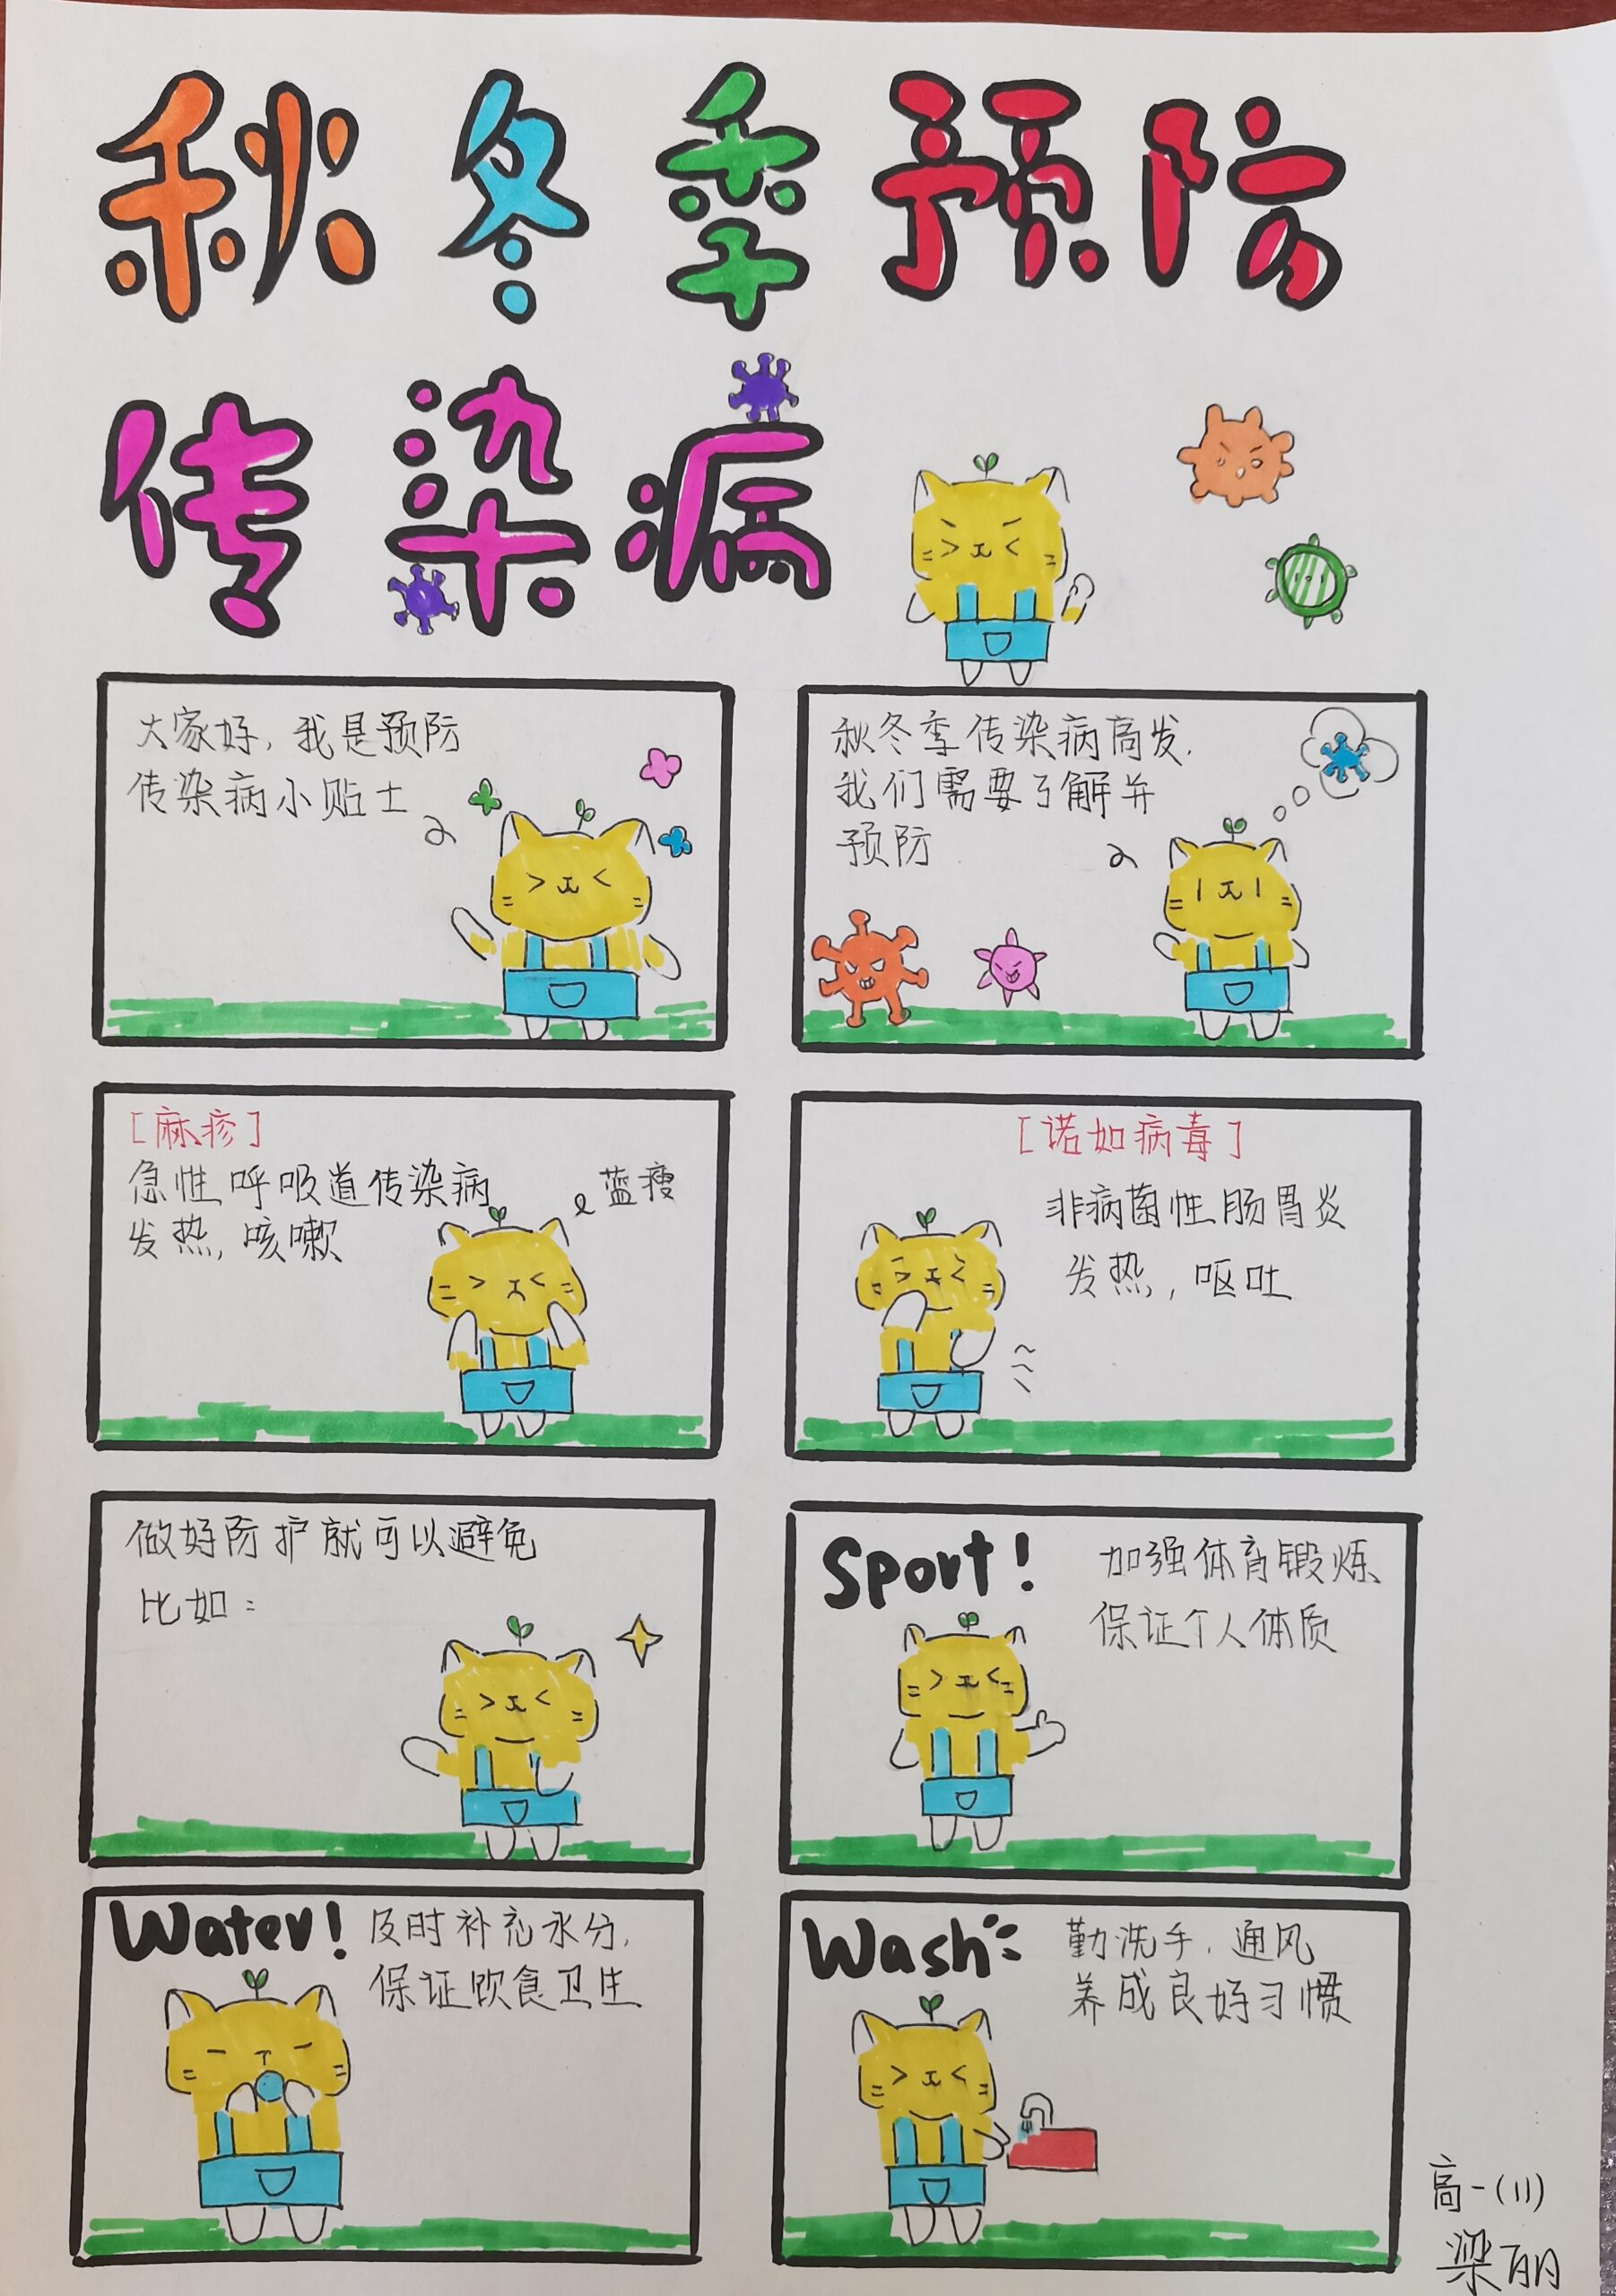 秋冬季预防
传染病
大家好，我是预防
传染病小贴士
秋冬季传染病高发，
我们需要了解并
预防
[麻疹]
急性呼吸道传染病
发热，咳嗽
蓝瘦
[诺如病毒]
非病菌性肠胃炎
发热，呕吐
做好防护就可以避免
比如：
Sport!
加强体育锻炼
保证个人体质
Water!
及时补充水分，
保证饮食卫生
Wash
勤洗手，通风
养成良好习惯
高一(11)
梁丽